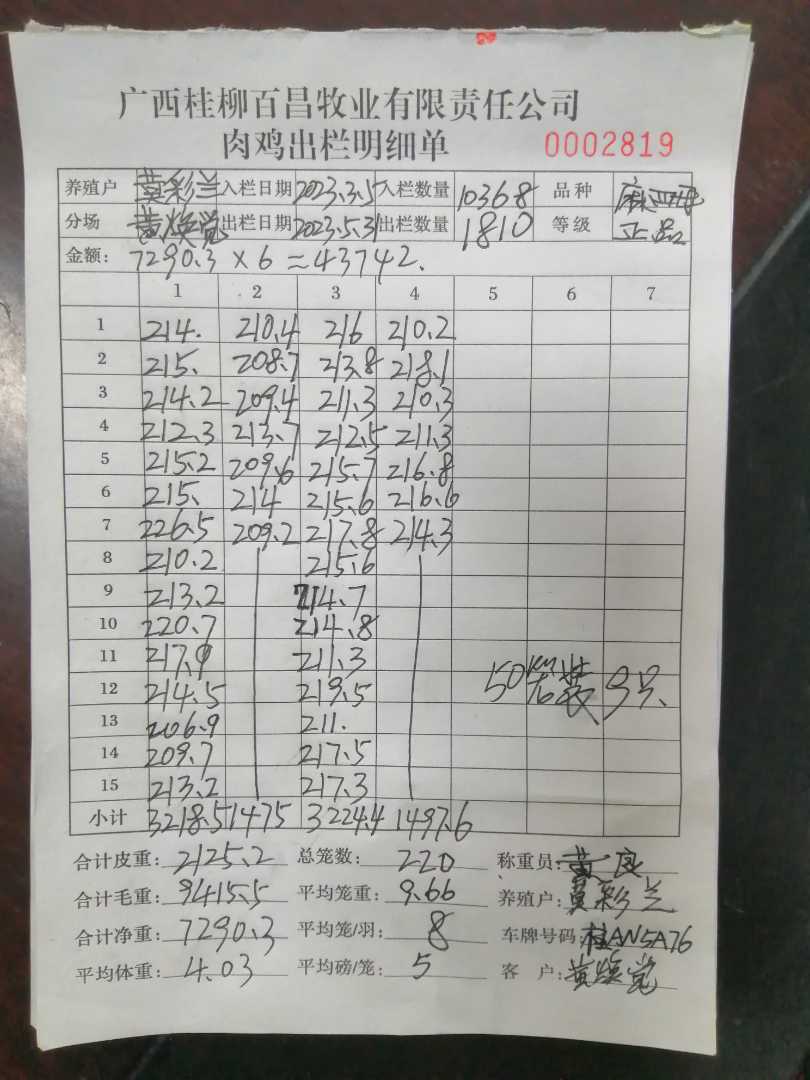 广西桂柳百昌牧业有限责任公司
肉鸡出栏明细单 0002819
养殖户 莫彩兰 入栏日期 2023.3.5 入栏数量 10368 品种 麻四
分场 黄焕觉 出栏日期 2023.5.31 出栏数量 1810 等级 正品
金额: 7290.3 × 6 = 43742.
1 2 3 4 5 6 7
1 214. 210.4 216 210.2
2 215. 208.7 213.8 218.1
3 214.2 209.4 211.3 210.3
4 212.3 213.7 212.5 211.3
5 215.2 209.6 215.7 216.8
6 215. 214 215.6 216.6
7 226.5 209.2 217.8 214.3
8 210.2 215.6
9 213.2 214.7
10 220.7 214.8
11 217.9 211.3
12 214.5 219.5 50 笼装 9号.
13 206.9 211.
14 209.7 217.5
15 213.2 217.3
小计 3218.5 1475 3224.4 1497.6
合计皮重: 2125.2 总笼数: 220 称重员: 黄良
合计毛重: 9415.5 平均笼重: 9.66 养殖户: 莫彩兰
合计净重: 7290.3 平均笼/羽: 8 车牌号码: 桂AN5A76
平均体重: 4.03 平均磅/笼: 5 客 户: 黄焕觉